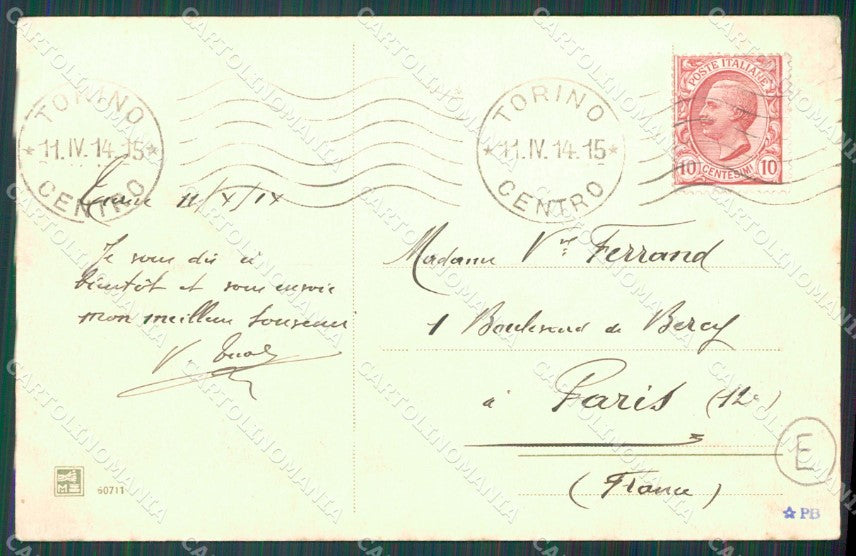 TORINO
* 11.IV.14.15 *
CENTRO
TORINO
* 11.IV.14.15 *
CENTRO
POSTE ITALIANE
10 CENTESIMI 10
11/X/14
Je vous dis à
bientôt et vous envoie
mon meilleur souvenir
V.
Madame Vve Ferrand
1 Boulevard de Bercy
à Paris (12e)
(France)
E
60711
PB
CARTOLINOMANIA